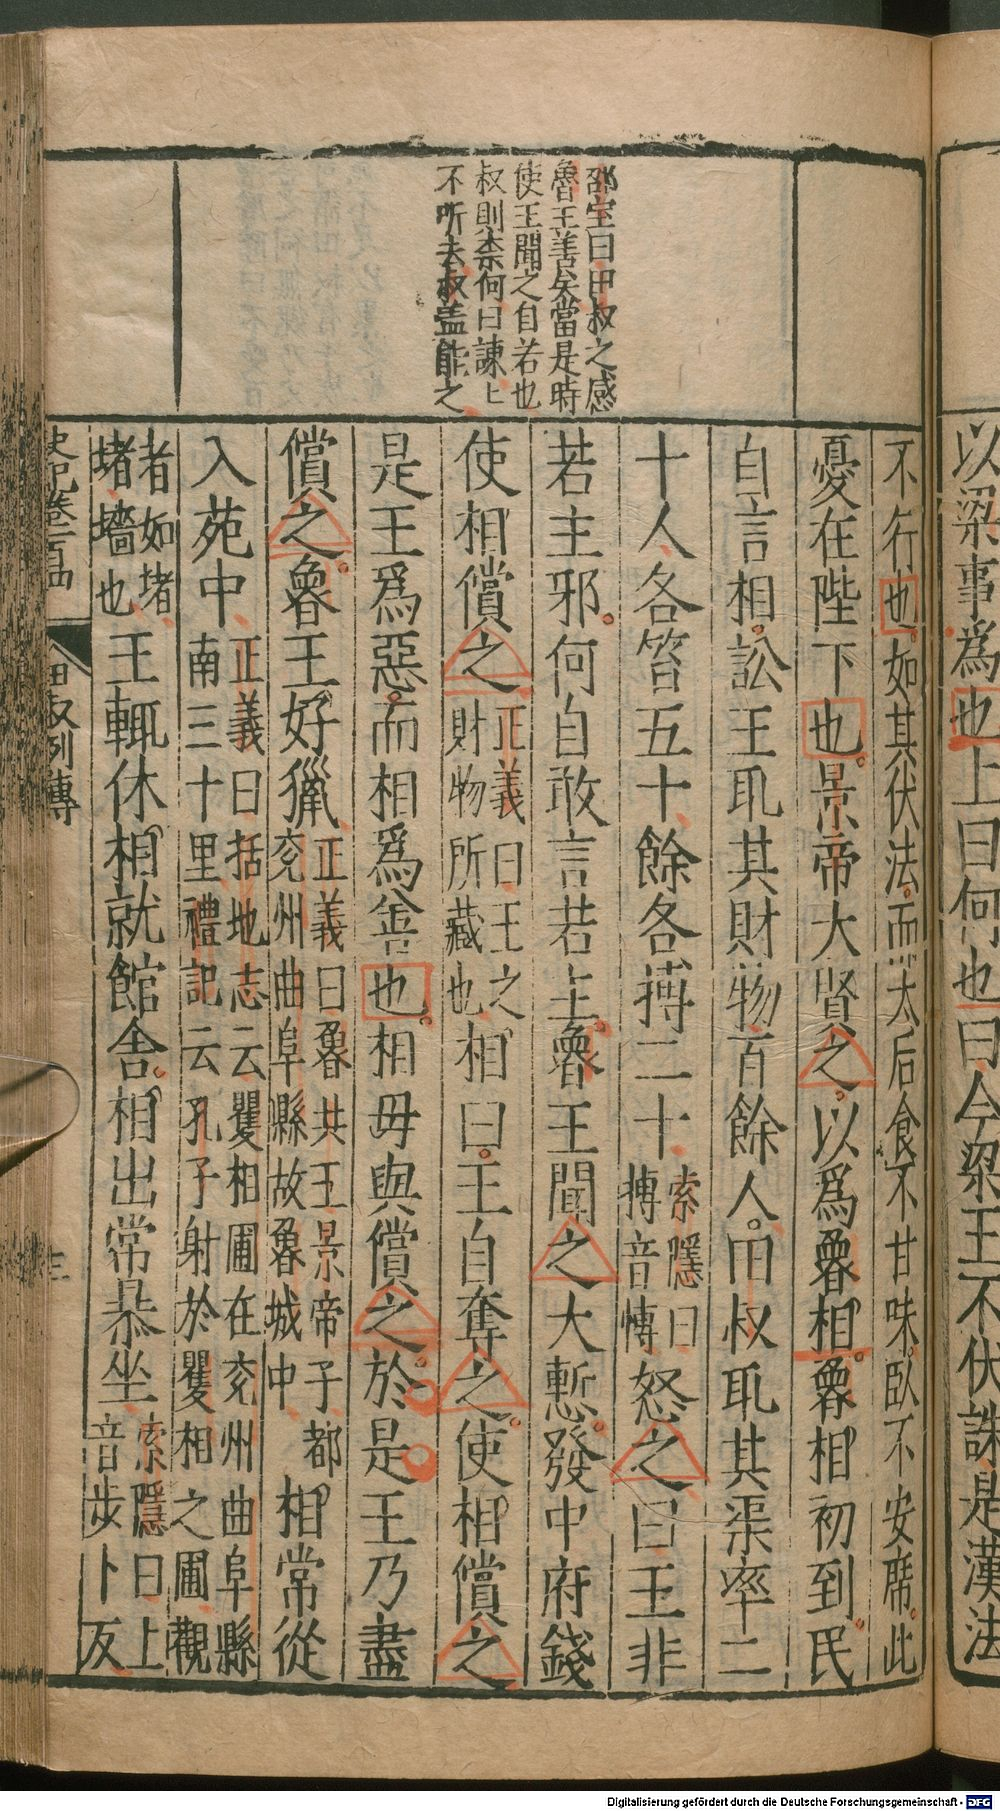 以梁事爲也上曰何也曰今梁王不伏誅是漢法
不行也如其伏法而太后食不甘味臥不安席此
憂在陛下也景帝大賢之以爲魯相魯相初到民
自言相訟王取其財物百餘人田叔取其渠率二
十人各笞五十餘各搏二十索隱曰搏音慱怒之曰王非
若主邪何自敢言若主魯王聞之大慙發中府錢
使相償之正義曰王之財物所藏也相曰王自奪之使相償之
是王爲惡而相爲善也相毋與償之於是王乃盡
償之魯王好獵正義曰魯共王景帝子都兖州曲阜縣故魯城中相常從
入苑中正義曰括地志云矍相圃在兖州曲阜縣南三十里禮記云孔子射於矍相之圃觀
者如堵堵墻也王輒休相就館舍相出常暴坐索隱曰上音步卜反
邵宝曰田叔之感
魯王善矣當是時
使王聞之自若也
叔則柰何曰諫上
不听去叔盖能之
史記卷一百四
田叔列傳
三
Digitalisierung gefördert durch die Deutsche Forschungsgemeinschaft - DFG